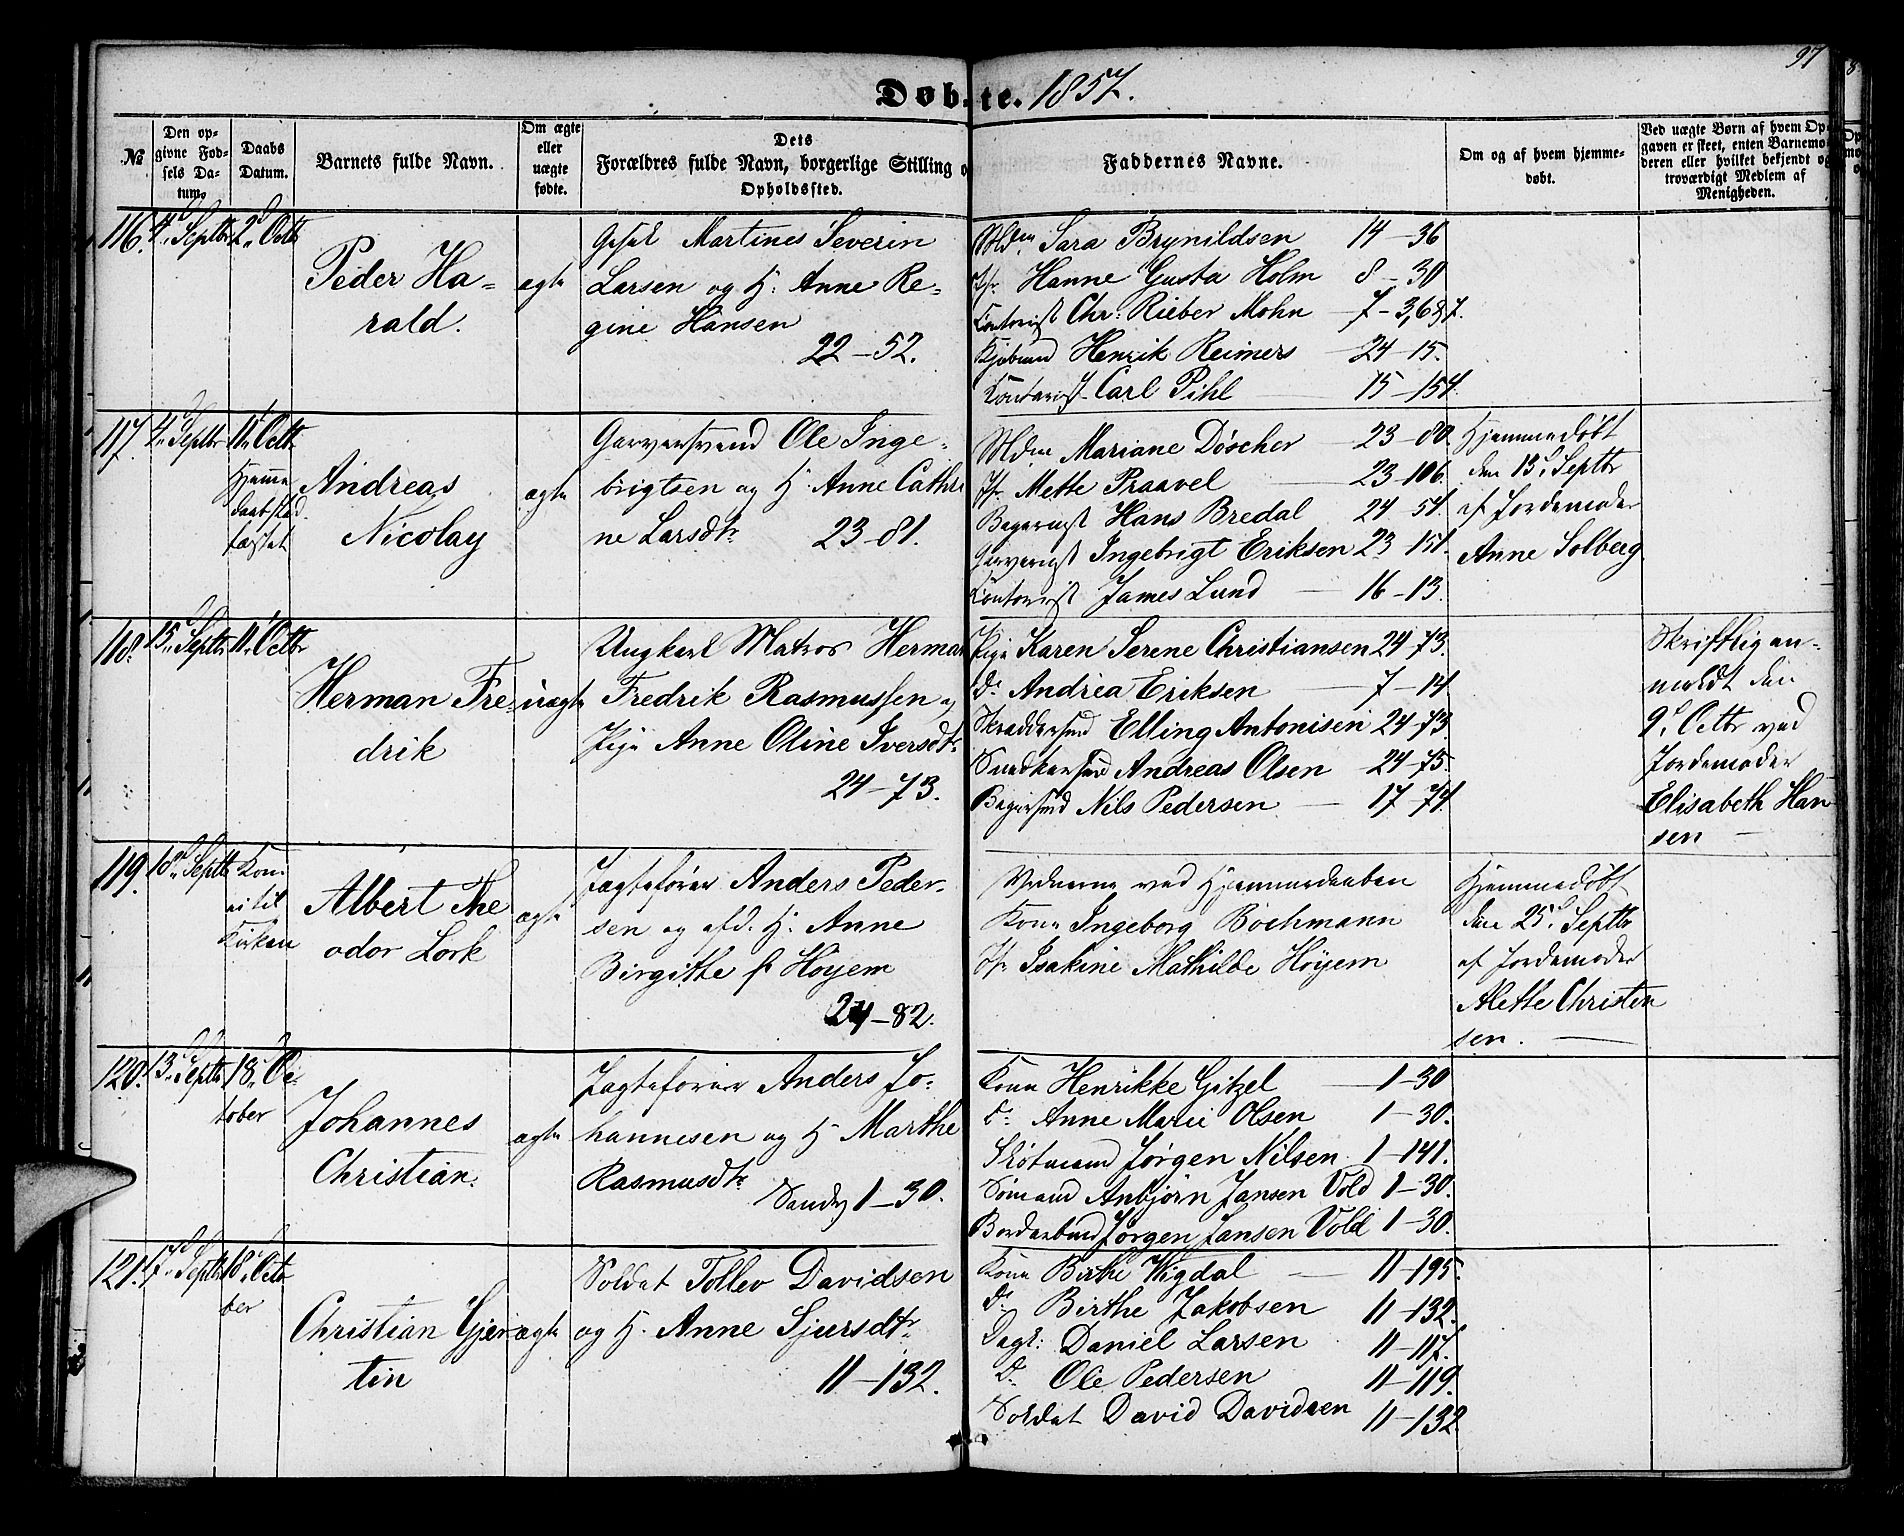 97
Døb-te. 1857.
No
Den opgivne Fødsels Datum.
Daabs Datum.
Barnets fulde Navn.
Om ægte eller uægte fødte.
Dets Forældres fulde Navn, borgerlige Stilling o
Opholdssted.
Faddernes Navne.
Om og af hvem hjemmedøbt.
Ved uægte Børn af hvem Op-
gaven er skeet, enten Barnemo-
deren eller hvilket bekjendt og
troværdigt Medlem af
Menigheden.
116. 4d Septbr 2d Octbr
Peder Ha-
rald.
ægte
Gesel Martines Severin
Larsen og H. Anne Re-
gine Hansen
22-52.
Mdm Sara Brynildsen 14-36
Jfr. Hanne Gusta Holm 8-30
Contorist Chr. Rieber Mohn 7-3,6&7.
Kjøbmd Henrik Reimers 24-15.
Contorist Carl Pihl 15-154.
117. 4d Septbr 11d Octbr
Hjemme
daab stad
fæstet
Andreas
Nicolay
ægte
Garversvend Ole Inge-
brigtsen og H. Anne Cathri
ne Larsdtr 23-81.
Mdm Mariane Döscher 23-80.
Jfr. Mette Praavel 23-106.
Hans Bredal 24-54.
Ingebrigt Eriksen 23-151.
Contorist James Lund 16-13.
Hjemmedøbt
den 13d Septbr
af Jordemoder
Anne Solberg
118. 15d Septbr 11d Octbr
Herman Fre-
drik
uægte
Ungkarl Matros Herman
Fredrik Rasmussen og
Pige Anne Oline Iversdtr
24-73.
Pige Karen Serene Christiansen 24-73.
do Andrea Eriksen 7-14
Skræddersvd Elling Antonisen 24-73.
Snedkersvd Andreas Olsen 24-75.
Bagersvd Nils Pedersen 17-74
Skriftlig an-
meldt den
9d Octbr ved
Jordemoder
Elisabeth Han
sen
119. 18d Septbr Kom
ei til
Kirken
Albert The
odor Lork
ægte
Jægtefører Anders Peder-
sen og afd. H. Anne
Birgitte f. Høyem
24-82.
Vidnerne ved Hjemmedaaben
Kone Ingeborg Bochmann
Jfr. Isakine Mathilde Höyem
Hjemmedøbt
den 25d Septbr
af Jordemoder
Alette Christen
sen.
120. 13d Septbr 18d Oc-
tober
Johannes
Christian.
ægte
Jagtefører Anders Jo-
hannesen og H. Marthe
Rasmusdtr
Sandv. 1-30.
Kone Henrikke Gitzel 1-30
do Anne Marie Olsen 1-30.
Jørgen Nilsen 1-141.
Sømand Anbjørn Jansen Vold 1-30.
Jørgen Jansen Vold 1-30.
121. 17d Septbr 18d Octo
ber
Christian Gjer
tin
ægte
Soldat Tollev Davidsen
og H. Anne Sjursdtr
11-132.
Kone Birthe Vigdal 11-195.
do Birthe Jakobsen 11-132.
Dagl: Daniel Larsen 11-117.
do Ole Pedersen 11-119.
Soldat David Davidsen 11-132